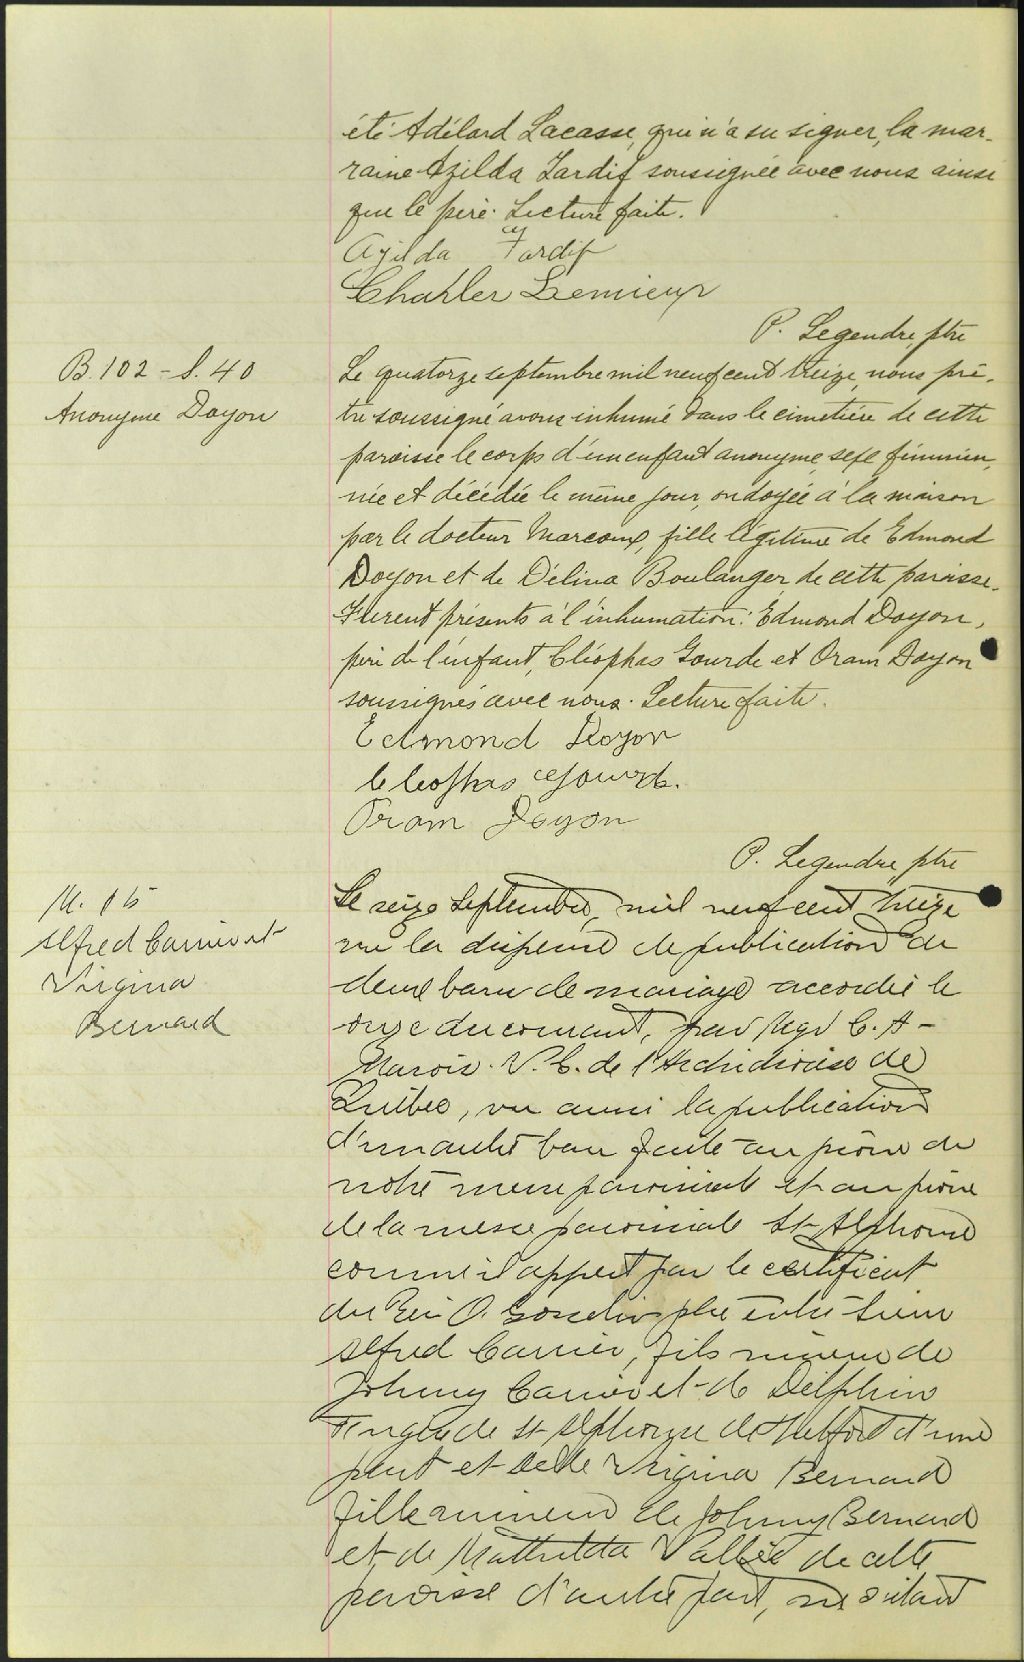 été Adélard Lacasse, qui n'a su signer, la mar-
raine Azilda Tardif soussignée avec nous ainsi
que le père. Lecture faite.
Azilda Tardif
Charles Lemieux
P. Legendre, ptre
B. 102 - S. 40
Anonyme Doyon
Le quatorze septembre mil neuf cent treize, nous prê-
tre soussigné avons inhumé dans le cimetière de cette
paroisse le corps d'un enfant anonyme, sexe féminin,
née et décédée le même jour, ondoyée à la maison
par le docteur Marcoux, fille légitime de Edmond
Doyon et de Délina Boulanger de cette paroisse.
Furent présents à l'inhumation: Edmond Doyon,
père de l'enfant, Cléophas Gourde et Oram Doyon
soussignés avec nous. Lecture faite.
Edmond Doyon
Cleophas Gourde.
Oram Doyon
P. Legendre, ptre
M.
Alfred Carrier et
Virginia
Bernard
Le seize Septembre, mil neuf cent treize
vu la dispense de publication de
deux bans de mariage accordée le
onze du courant, par Mgr C. A-
Marois. V. G. de l'Archidiocèse de
Québec, vu aussi la publication
d'un autre ban faite au prône de
notre messe paroissiale et au prône
de la messe paroissiale St-Alphonse
comme il appert par le certificat
du Rév. O. Gosselin ptre entre Sieur
Alfred Carrier, fils mineur de
Johnny Carrier et de Delphine
de St Alphonse de Thetford d'une
part et Delle Virginia Bernard
fille mineure de Johnny Bernard
et de Mathilda Vallée de cette
paroisse d'autre part, ne s'étant